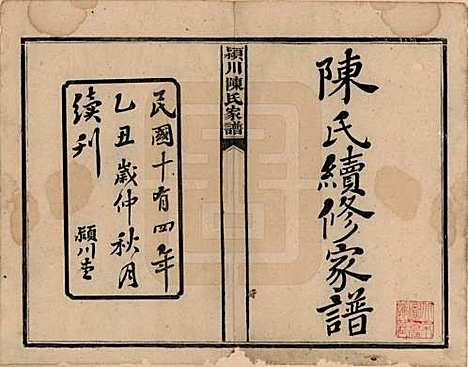 陳氏續修家譜
潁川陳氏家譜
民國十有四年
乙丑歲仲秋月
續刊
潁川堂